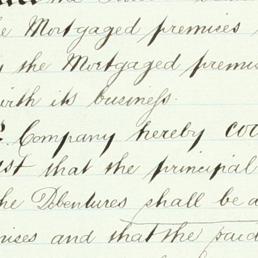 the
Mortgaged premises
the Mortgaged premis
with its business.
Company hereby cov
that the principal
the Debentures shall be a
mises and that the said